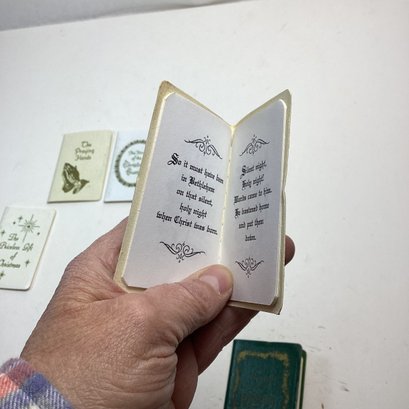 The
Praying
Hands
The
Precious Gift of
Christmas
So it must have been
in Bethlehem
on that silent,
holy night
when Christ was born.
Silent night,
Holy night.
Words came to him.
He hastened home
and put them
down.